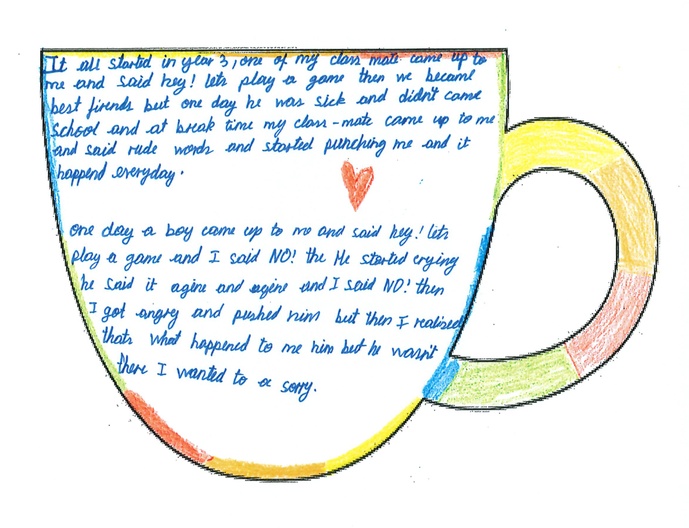 It all started in year 3, one of my class mate came up to
me and said hey! lets play a game then we became
best firends but one day he was sick and didn't came
school and at break time my class-mate came up to me
and said rude words and started punching me and it
happend everyday.
one day a boy came up to me and said hey! lets
play a game and I said NO! the He started crying
he said it agine and agine and I said NO! then
I got angry and pushed him but then I realised
thats what happened to me him but he wasn't
there I wanted to a sorry.